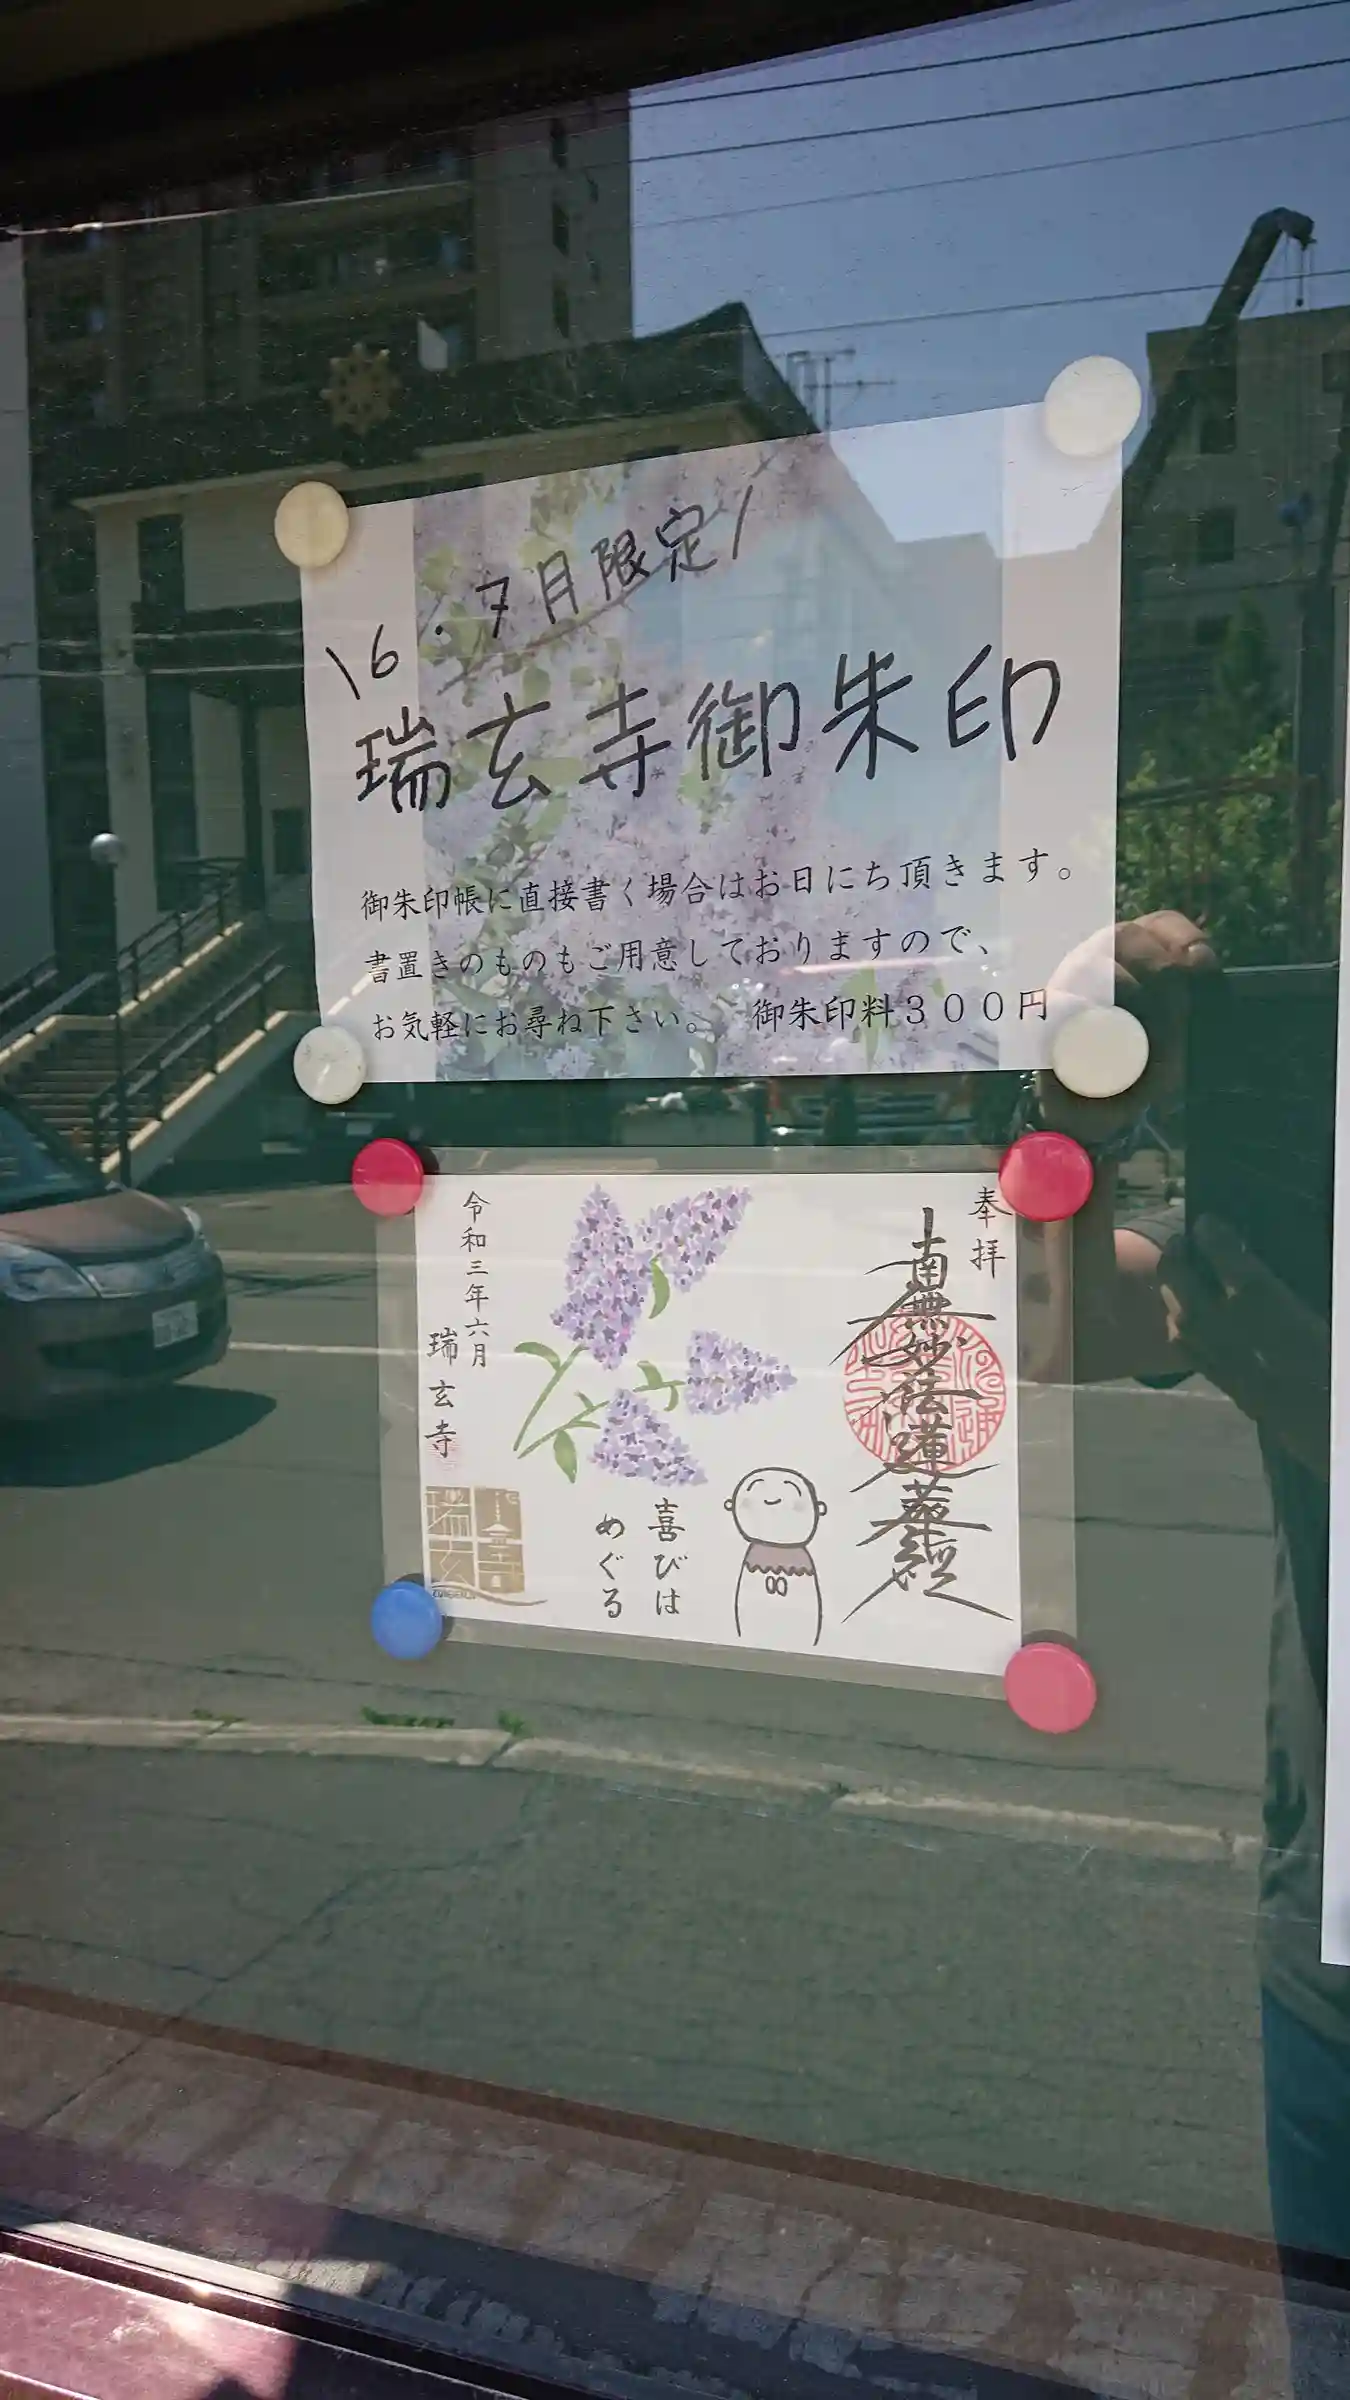 \6.7月限定/
瑞玄寺御朱印
御朱印帳に直接書く場合はお日にち頂きます。
書置きのものもご用意しておりますので、
お気軽にお尋ね下さい。 御朱印料300円
奉拝
南無妙法蓮華経
喜びは
めぐる
令和三年六月
瑞玄寺
瑞玄寺